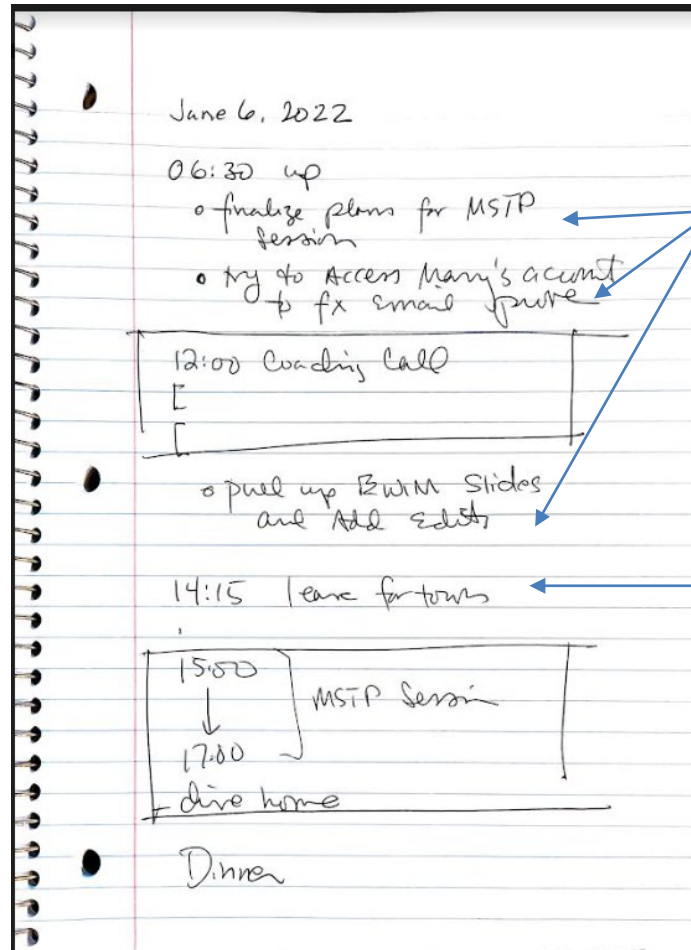 June 6, 2022
06:30 up
o finalize plans for MSTP
Session
• try to Access Mary's account
to fx email
12:00 Coaching Call
[
[
o pull up BWIM Slides
and Add Edits
14:15 leave for town
15:00
↓
17:00
MSTP Session
drive home
Dinner